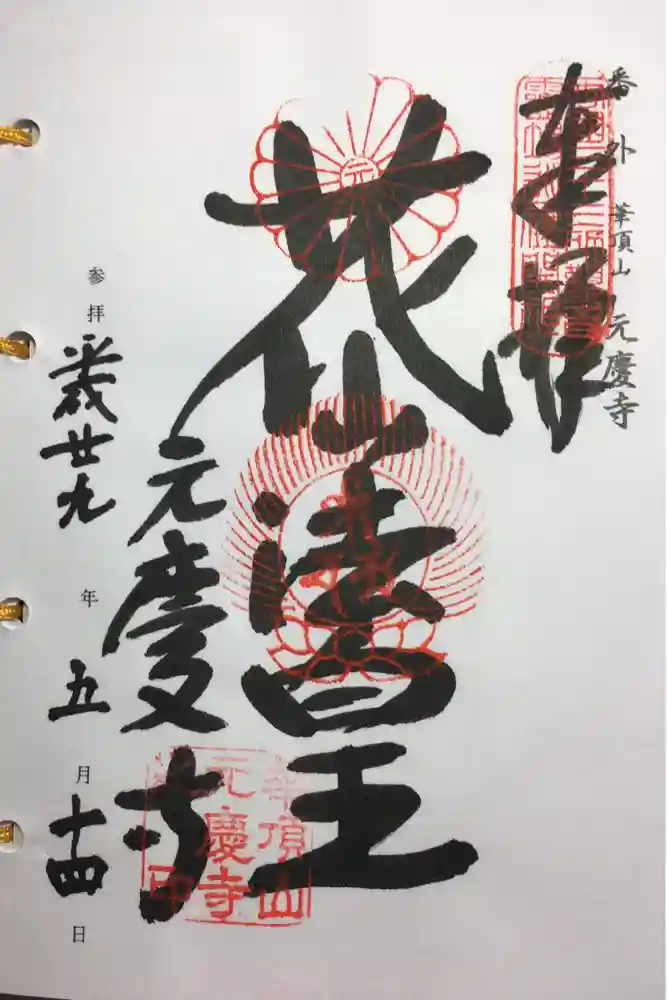 番外 華頂山 元慶寺
奉拝
花山法皇
元慶寺
参拝 平成廿九年五月十四日
元
華頂山
元慶寺
印